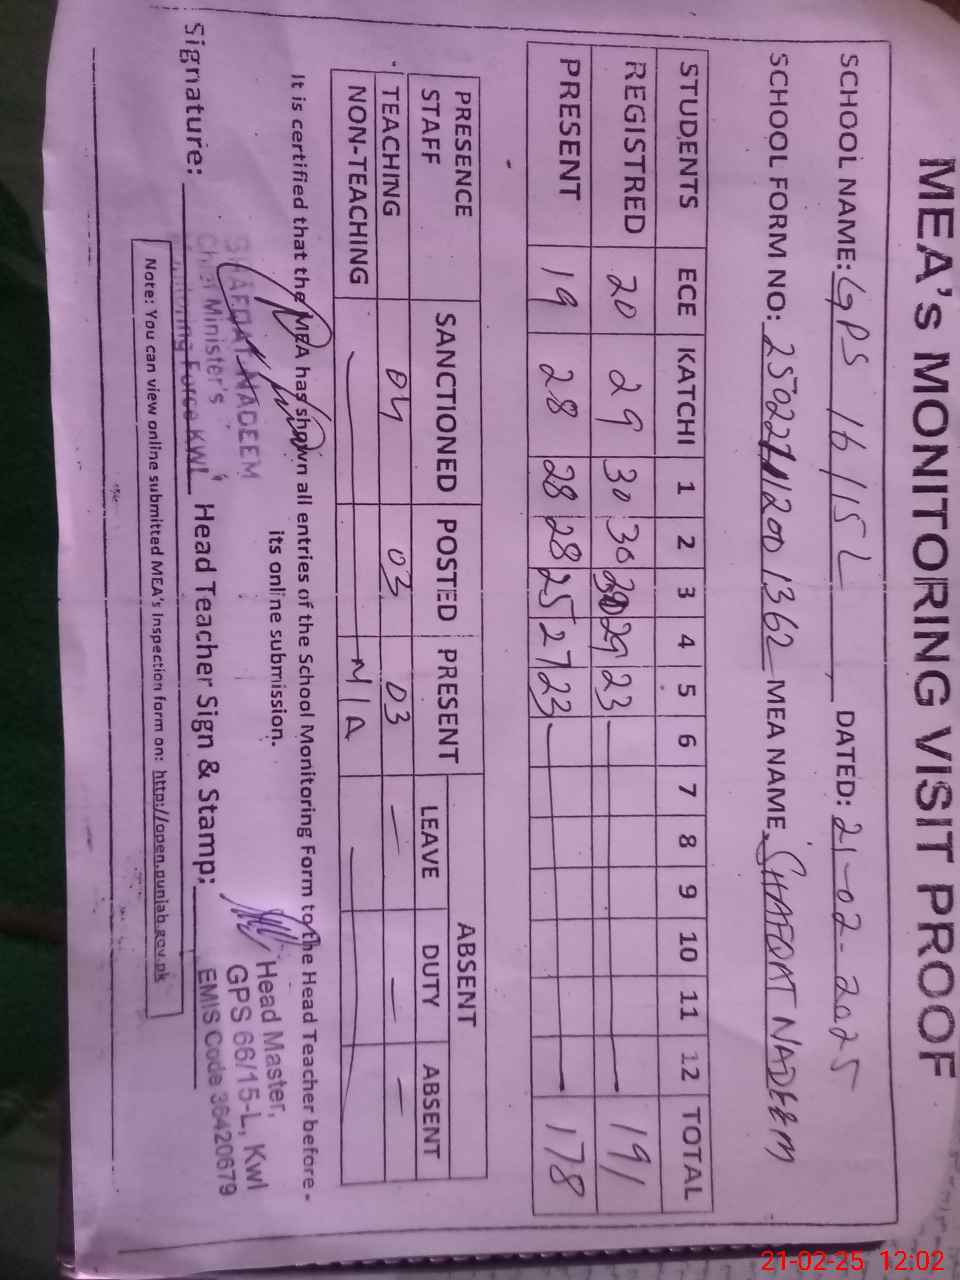 MEA's MONITORING VISIT PROOF
SCHOOL NAME: GPS 16/15L DATED: 21-02-2025
SCHOOL FORM NO: MEA NAME: SHAFQAT NADEEM
STUDENTS ECE KATCHI 1 2 3 4 5 6 7 8 9 10 11 12 TOTAL
REGISTRED 20 29 30 30 29 23 191
PRESENT 19 28 28 28 25 27 23 178
PRESENCE STAFF SANCTIONED POSTED PRESENT ABSENT
LEAVE DUTY ABSENT
TEACHING 04 03 03 — — —
NON-TEACHING N/A
It is certified that the MEA has shown all entries of the School Monitoring Form to the Head Teacher before-
its online submission.
SHAFQAT NADEEM
Chief Minister's
Monitoring Force KWL
Signature: Head Teacher Sign & Stamp:
Head Master,
GPS 66/15-L, Kwl
EMIS Code 36420679
Note: You can view online submitted MEA's Inspection form on: http://open.punjab.gov.pk
21-02-25 12:02